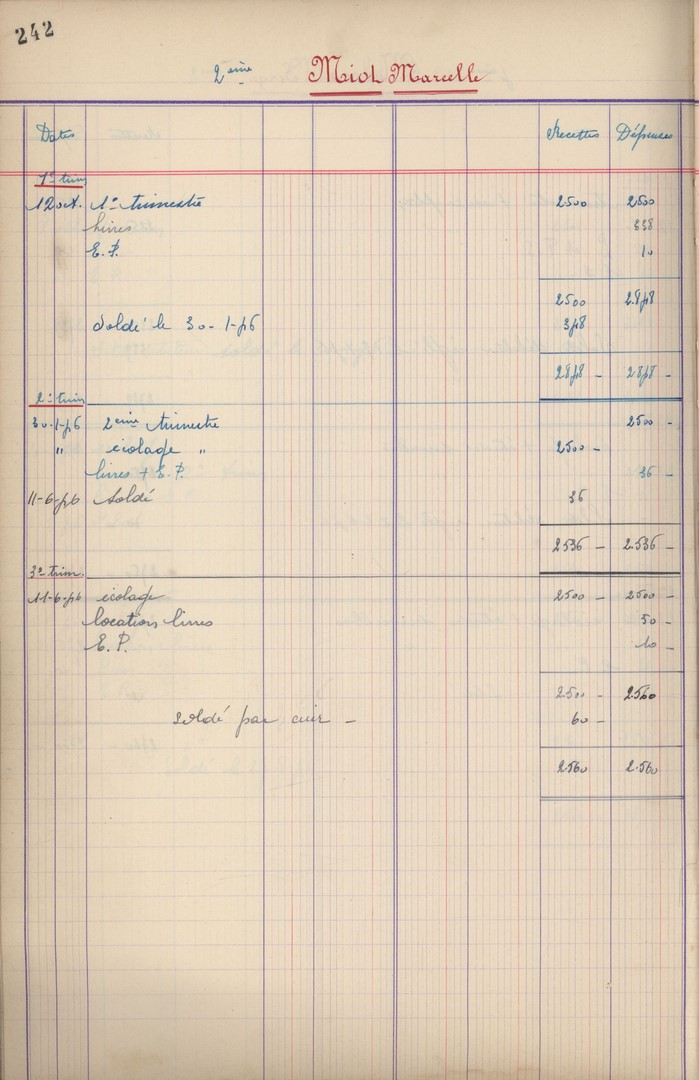 242
2ème Miot Marcelle
Dates Recettes Dépenses
1er trim
12 oct. 1er trimestre 2500 2500
livres 338
E.P. 10
2500 2.848
Soldé le 30-1-46 348
2848 - 2848 -
2e trim
30-1-46 2ème trimestre 2500 -
" écolage " 2500 -
livres + E.P. 36 -
11-6-46 Soldé 36
2536 - 2.536 -
3e trim.
11-6-46 écolage 2500 - 2500 -
locations livres 50 -
E.P. 10 -
2.500 - 2.560
soldé par cuir - 60 -
2.560 2.560